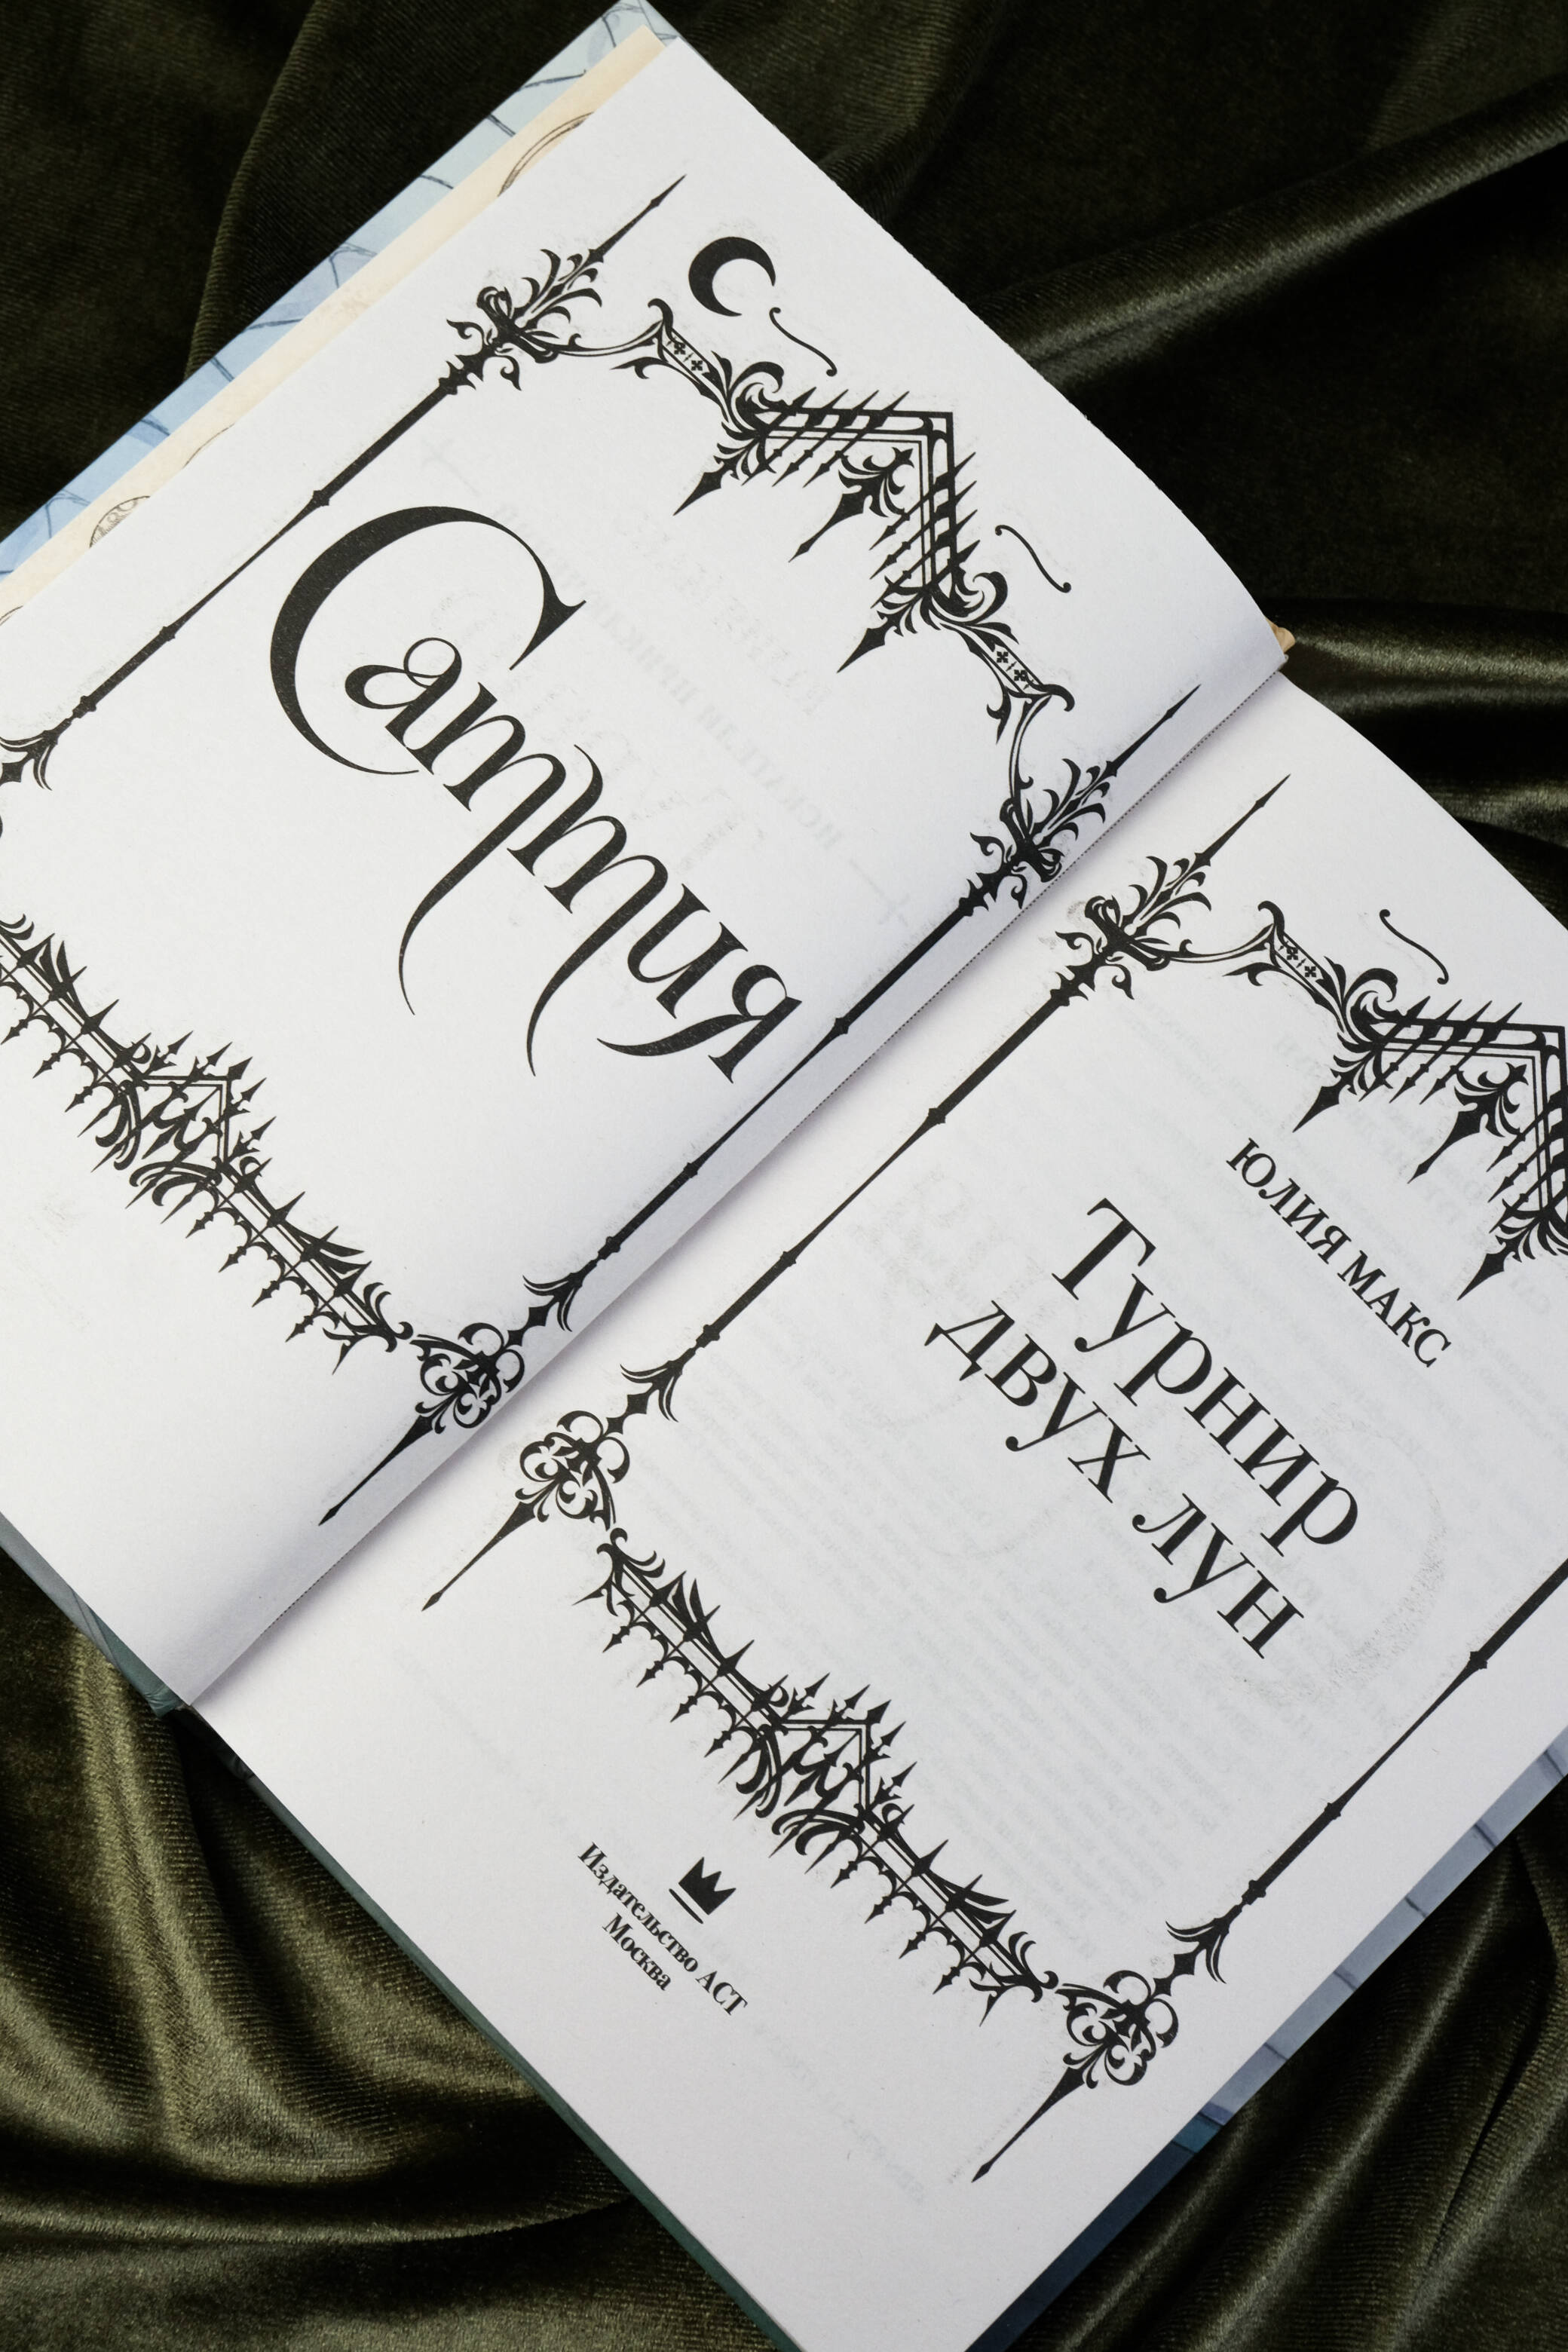 Саттия
ЮЛИЯ МАКС
Турнир
двух лун
Издательство АСТ
Москва